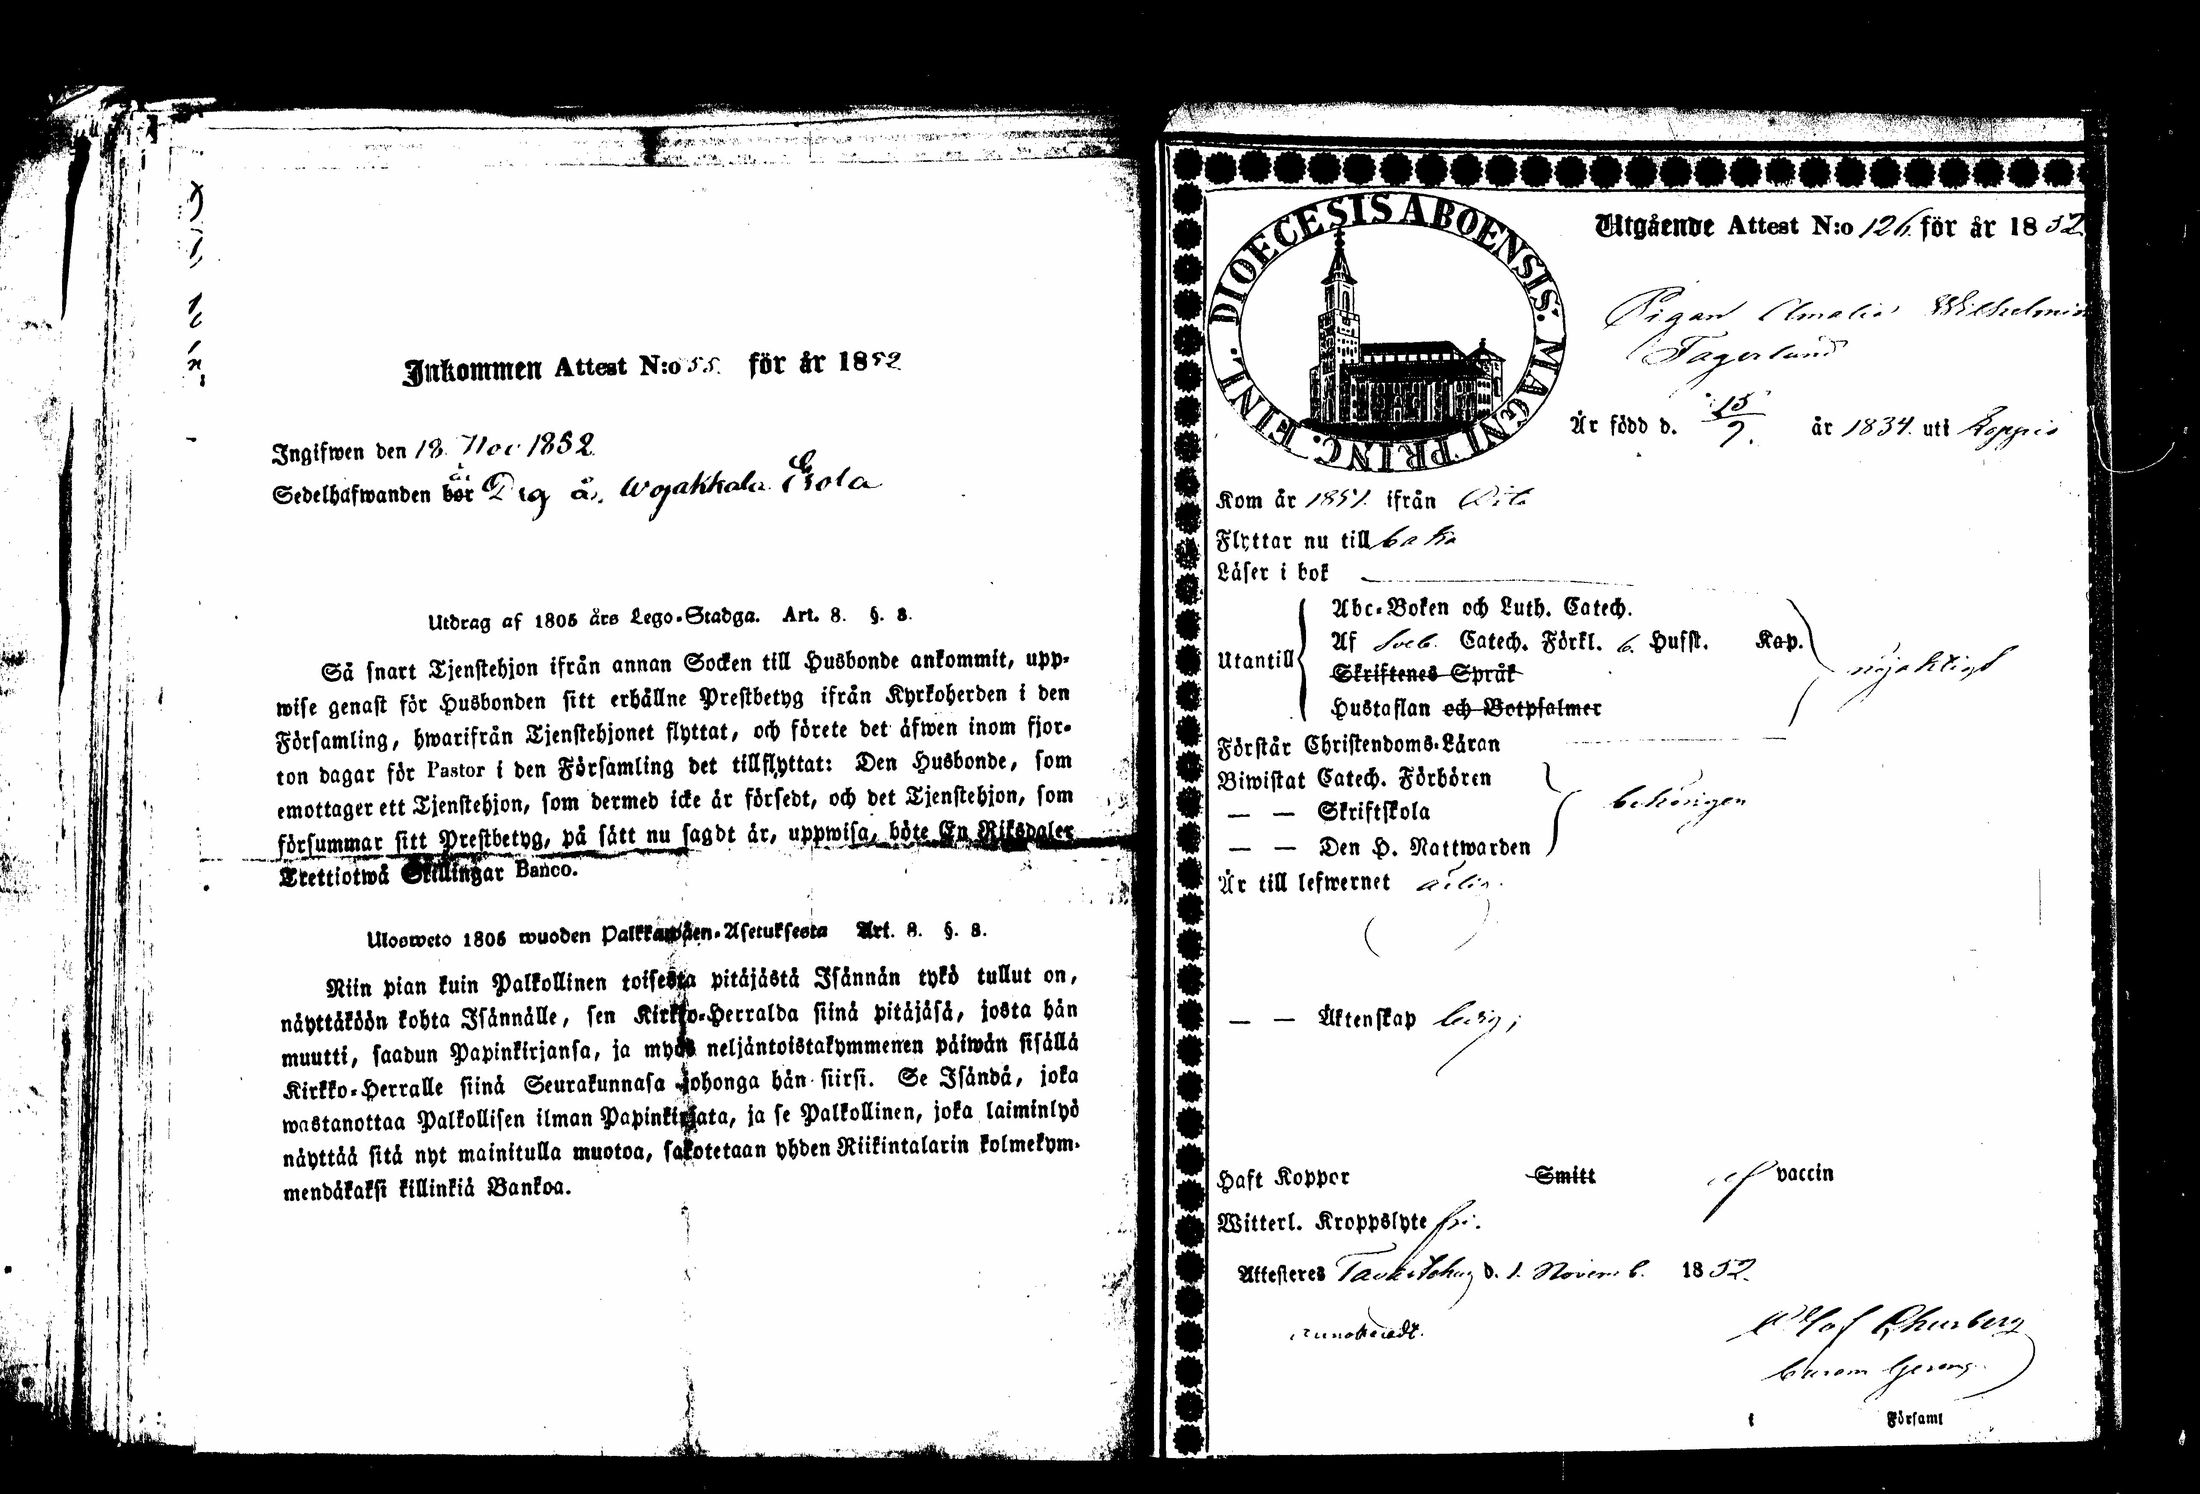 Inkommen Attest N:o 55. för år 1852
Ingifwen den 18. Nov 1852.
Sedelhafwanden bör är Pig å, Wojakkala Esola
Utdrag af 1805 års Lego-Stadga. Art. 8. §. 8.
Så snart Tjenstehjon ifrån annan Socken till Husbonde ankommit, upp-
wise genast för Husbonden sitt erhållne Prestbetyg ifrån Kyrkoherden i den
Församling, hwarifrån Tjenstehjonet flyttat, och förete det äfwen inom fjor-
ton dagar för Pastor i den Församling det tillflyttat: Den Husbonde, som
emottager ett Tjenstehjon, som dermed icke är försedt, och det Tjenstehjon, som
försummar sitt Prestbetyg, på sätt nu sagdt är, uppwisa, böte En Riksdaler
Trettiotwå Skillingar Banco.
Ulosweto 1805 wuoden Palkkawäen-Asetuksesta Art. 8. §. 8.
Niin pian kuin Palkollinen toisesta pitäjästä Isännän tykö tullut on,
näyttäköön kohta Isännälle, sen Kirkko-Herralda siinä pitäjäsä, josta hän
muutti, saadun Papinkirjansa, ja myös neljäntoistakymmenen päiwän sisällä
Kirkko-Herralle siinä Seurakunnasa johonga hän siirsi. Se Isändä, joka
wastanottaa Palkollisen ilman Papinkirjata, ja se Palkollinen, joka laiminlyö
näyttää sitä nyt mainitulla muotoa, sakotetaan yhden Riikintalarin kolmekym-
mendäkaksi killinkiä Bankoa.
DIOECESIS ABOENSIS. MAGNI PRINC. FINL.
Utgående Attest N:o 126. för år 1852
Pigan Amalia Wilhelmina
Fagerlund
Är född d. 15/9. år 1834. uti Loppis
Kom år 1851. ifrån
Flyttar nu till
Läser i bok
Utantill
Abc-Boken och Luth. Catech.
Af Sveb. Catech. Förkl. 6. Hufst. Kap.
Skriftenes Språk
Hustaflan och Botpsalmer
nöjaktigt
Förstår Christendoms-Läran
Biwistat Catech. Förhören
— — Skriftskola
— — Den H. Nattwarden
behörigen
Är till lefwernet ärlig.
— — Äktenskap ledig;
Haft Koppor Smitt af vaccin
Witterl. Kroppslyte fri.
Attesteres Tavastehus d. 1. Novemb. 1852.
Olof Churberg
i Församl